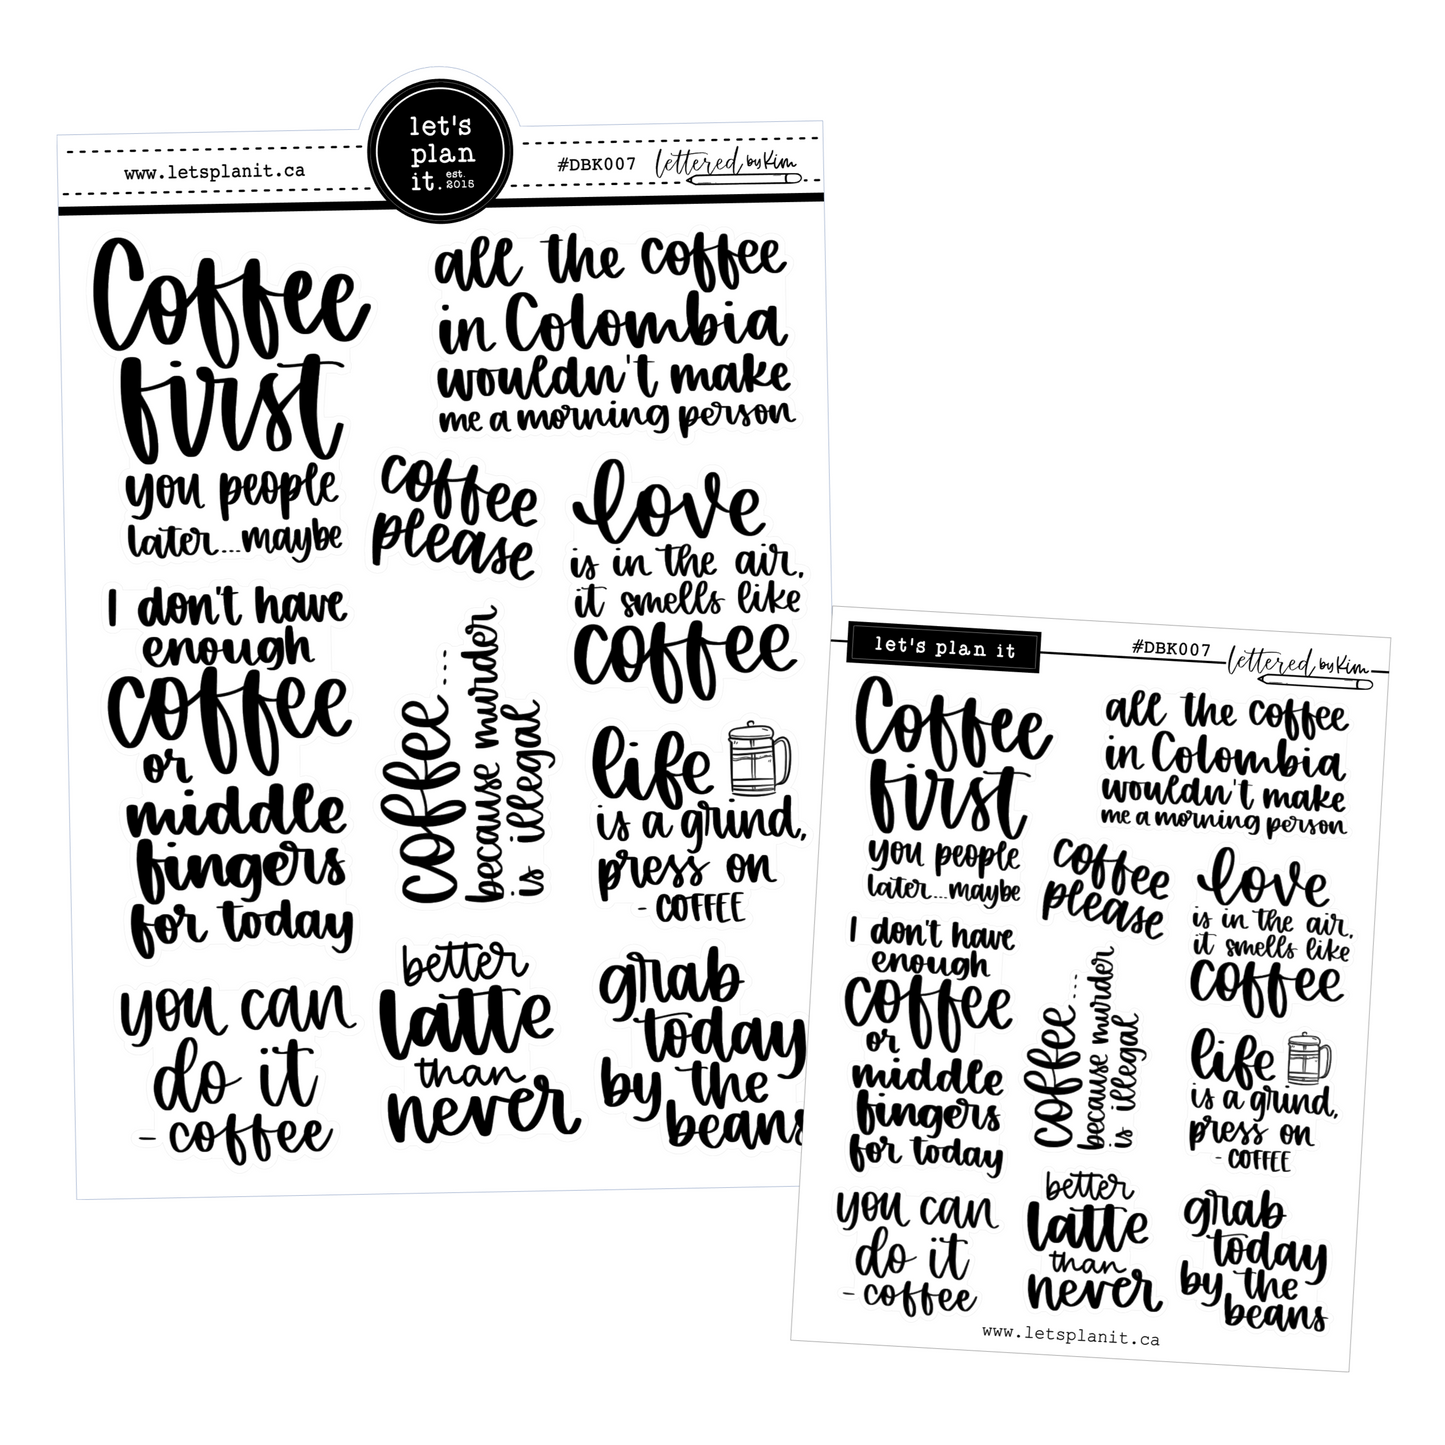 www.letsplanit.ca
let's
plan
it. est. 2015
#DBK007
lettered by Kim
Coffee
first
you people
later...maybe
all the coffee
in Colombia
wouldn't make
me a morning person
coffee
please
love
is in the air,
it smells like
coffee
I don't have
enough
coffee
or
middle
fingers
for today
coffee....
because murder
is illegal
life
is a grind,
press on
- COFFEE
you can
do it
- coffee
better
latte
than
never
grab
today
by the
beans
let's plan it
#DBK007
lettered by Kim
Coffee
first
you people
later...maybe
all the coffee
in Colombia
wouldn't make
me a morning person
coffee
please
love
is in the air,
it smells like
coffee
I don't have
enough
coffee
or
middle
fingers
for today
coffee....
because murder
is illegal
life
is a grind,
press on
- COFFEE
you can
do it
- coffee
better
latte
than
never
grab
today
by the
beans
www.letsplanit.ca